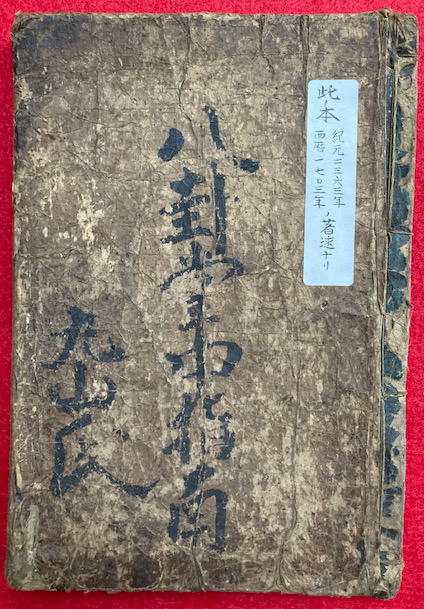 此ノ本
紀元二三六三年
西暦一七〇三年
ノ著述ナリ
八卦掌中指南
丸山氏